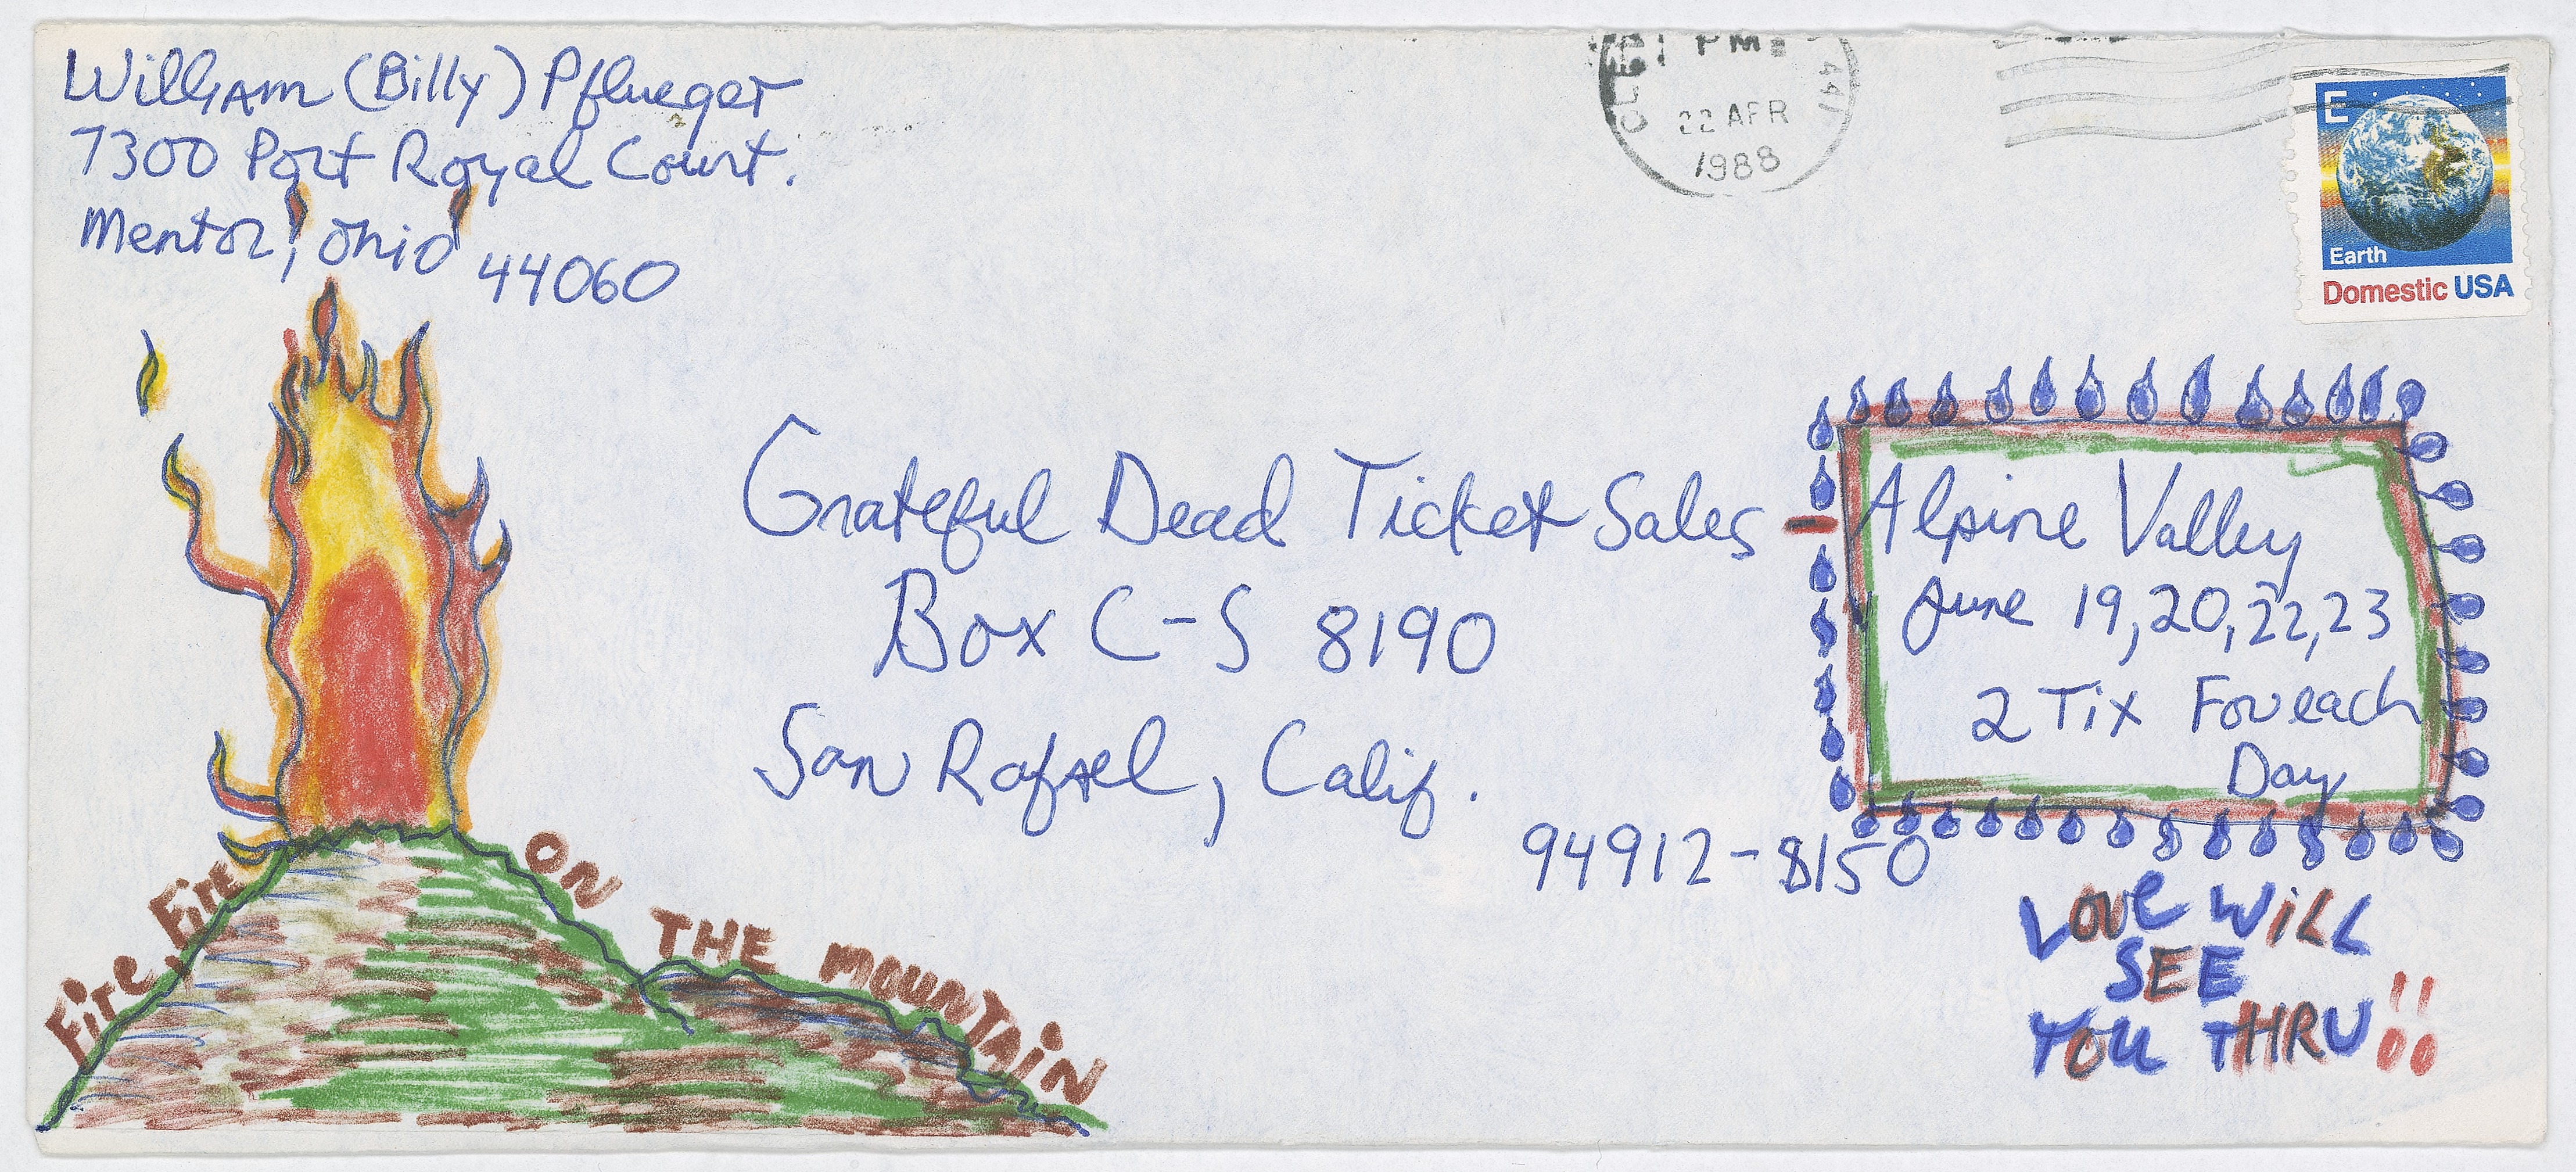 William (Billy) Pflueger
7300 Port Royal Court.
Mentor, Ohio 44060
PM
22 APR
1988
E
Earth
Domestic USA
Grateful Dead Ticket Sales -
Box C-S 8190
San Rafael, Calif.
94912-8150
Alpine Valley
June 19, 20, 22, 23
2 Tix For each
Day
Love Will
SEE
You THRU!!
Fire, Fire ON THE MOUNTAIN